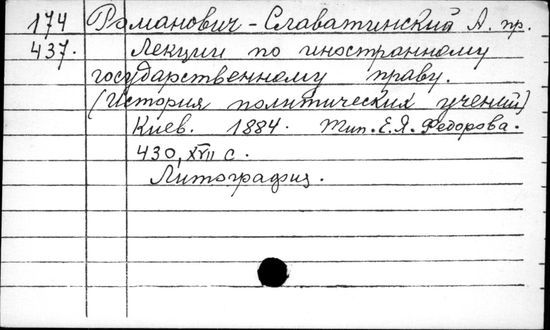 174 Романович-Славатинский А. пр.
437. Лекции по иностранному
государственному праву.
(История политических учений)
Киев. 1884. Тип. Е.Я. Федорова.
430, XVII с.
Литографиц.